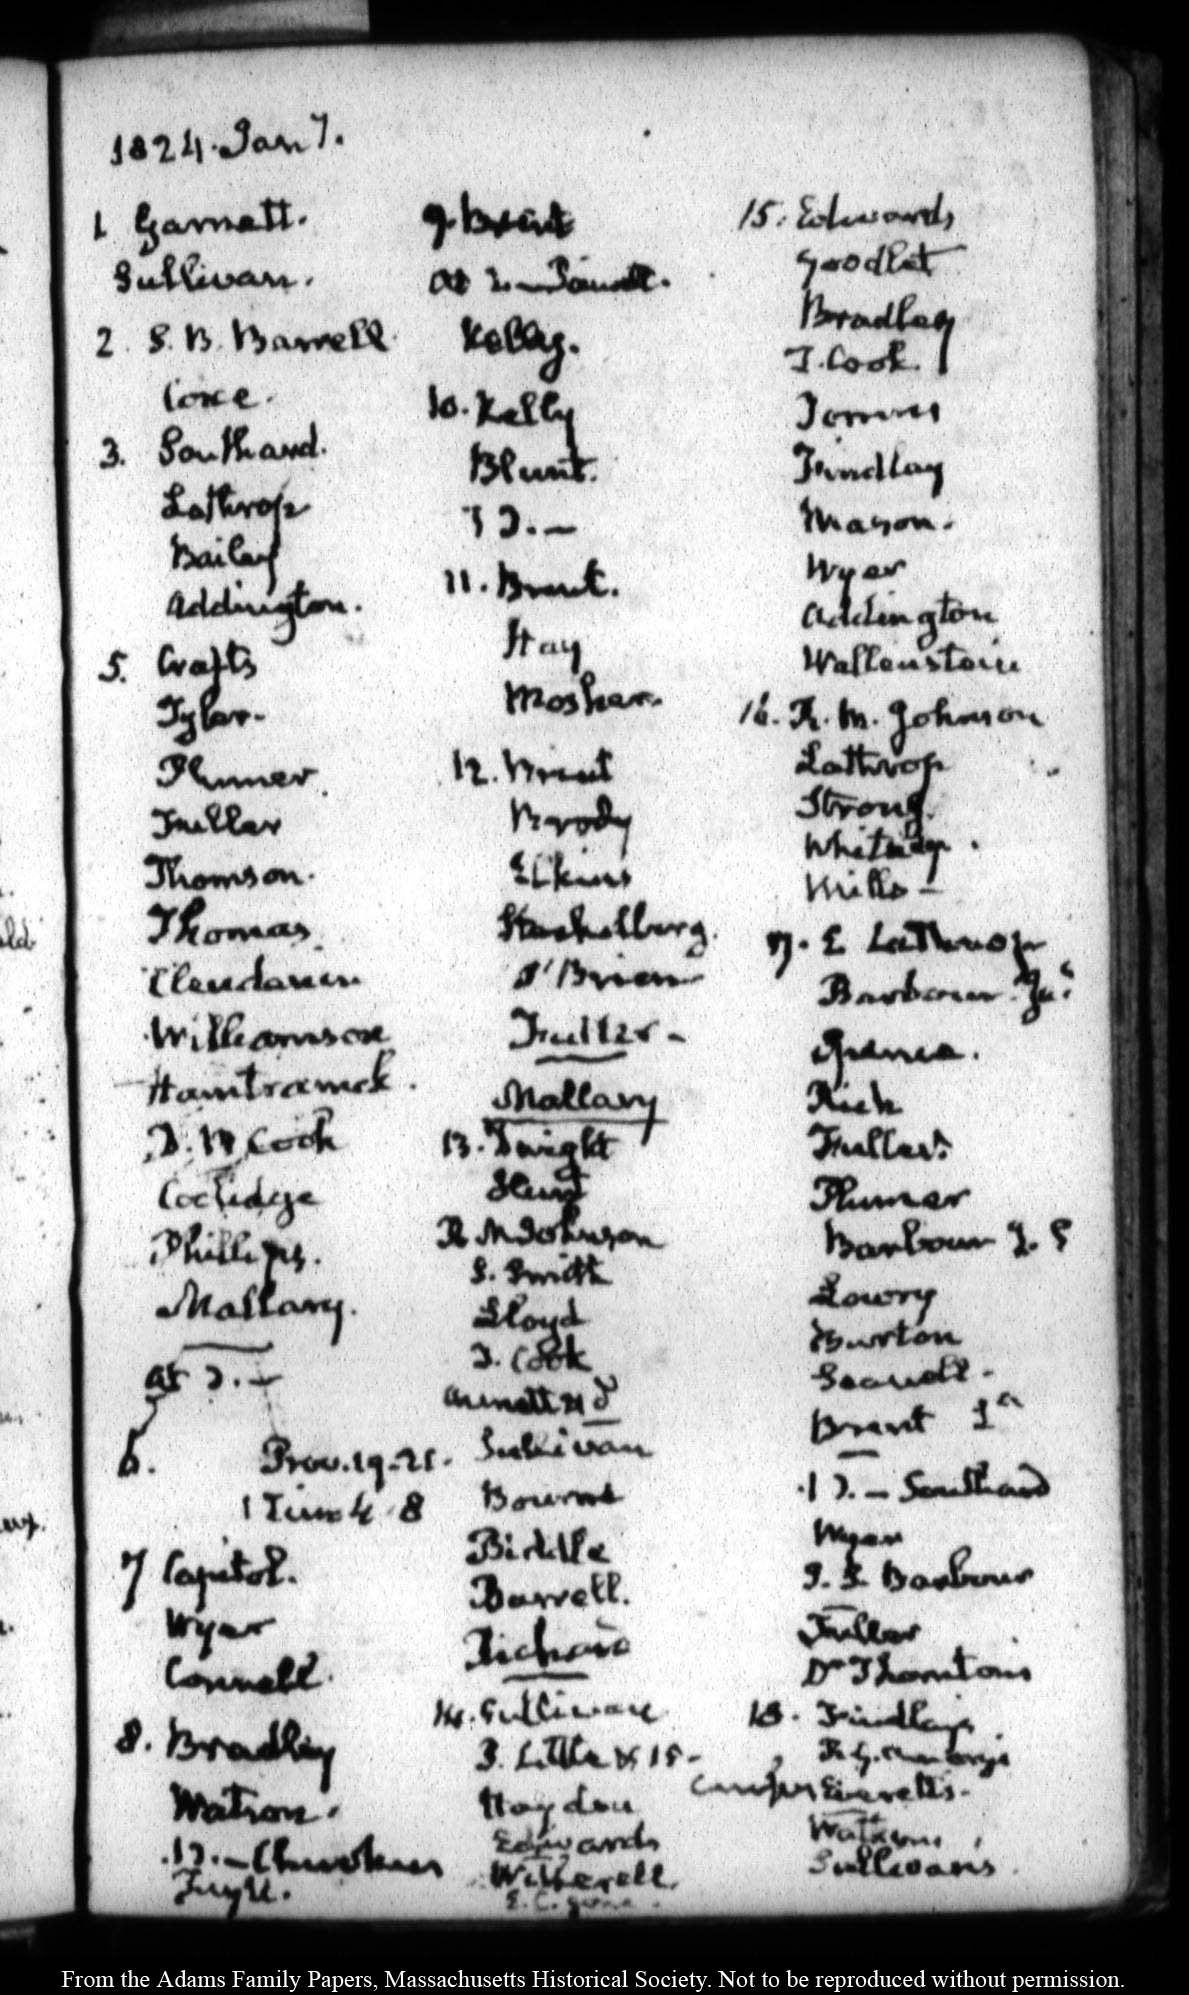 1824. Jan 7.
1 Garnett.
Sullivan.
2 S. B. Barrell
Coxe.
3. Southard.
Lathrop
Bailey
Addington.
5. Crafts
Tyler.
Plumer
Fuller
Thomson.
Thomas
Clendanen
Williamson
Hamtramck.
D. P. Cook
Coolidge
Phillips.
Mallary.
at
6. Prov. 19-21.
1 Tim 4 8
7 Capitol.
Wyer
Connell
8. Bradley
Watson.
Tuyll.
9. Brent
at
Kelly.
10. Kelly
Blunt.
11. Brent.
Hay
Mosher.
12. Brent
Brody
Elkins
Stackelberg.
O'Brien
Fuller
Mallary
13. Dwight
Hunt
R. M Johnson
S. Smith
Lloyd
D. Cook
Sullivan
Bourne
Biddle
Barrell.
Richard
14. Sullivan
P. Little & 15.
Haydon
Edwards
Witherell.
15. Edwards
Goodlet
Bradley
D. Cook
Findlay
Mason.
Wyer
Addington
Wallenstein
16. R. M. Johnson
Lathrop
Strong.
Mills
17. E Lathrop
Barbour. Ja.s
Rich
Fuller.
Plumer
Barbour J. S
Lowry
Burton
Brent
Southard
Wyer
J. S. Barbour
Fuller
Dr Thornton's
18. Findlay's
Everett's.
Watson
Sullivan's
From the Adams Family Papers, Massachusetts Historical Society. Not to be reproduced without permission.